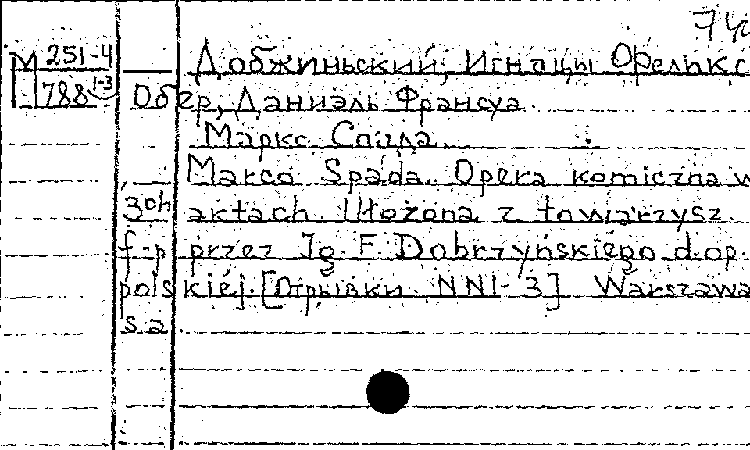 74
М 251-4
788 1-3
Добжиньский, Игнацы
Обер, Даниэль Франсуа
Марко Спада.
Marco Spada. Opera komiczna w
3 ch aktach. Ułożona z towarzysz.
f-p przez Ig. F. Dobrzyńskiego d.op.
polskiéj. [Отрывки NN1-3] Warszawa
s a